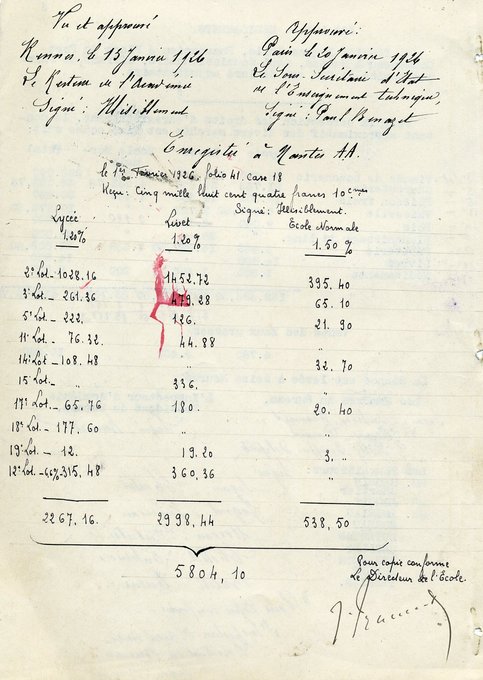 Vu et approuvé
Rennes, le 15 Janvier 1926
Le Recteur de l'Académie
Signé : Illisiblement
Approuvé:
Paris le 20 Janvier 1926
Le Sous-Secrétaire d'Etat
de l'Enseignement technique,
Signé : Paul Benazet
Enregistré à Nantes AA.
le 1er Février 1926, folio 41, case 18
Reçu : Cinq mille huit cent quatre francs 10 cmes
Signé : Illisiblement.
Lycée Livet Ecole Normale
1.20% 1.20% 1.50%
2e Lot - 1028.16 1452.72 395.40
3e Lot - 261.36 479.28 65.10
5e Lot - 222. 126. 21.90
11e Lot - 76.32 44.88 "
14e Lot - 108.48 " 32.70
15e Lot - " 336. "
17e Lot - 65.76 180. 20.40
18e Lot - 177.60 " "
19e Lot - 12. 19.20 3. "
12e Lot - 66% 315.48 360.36 "
2267.16. 2998,44 538,50
5804,10
Pour copie conforme
Le Directeur de l'Ecole.